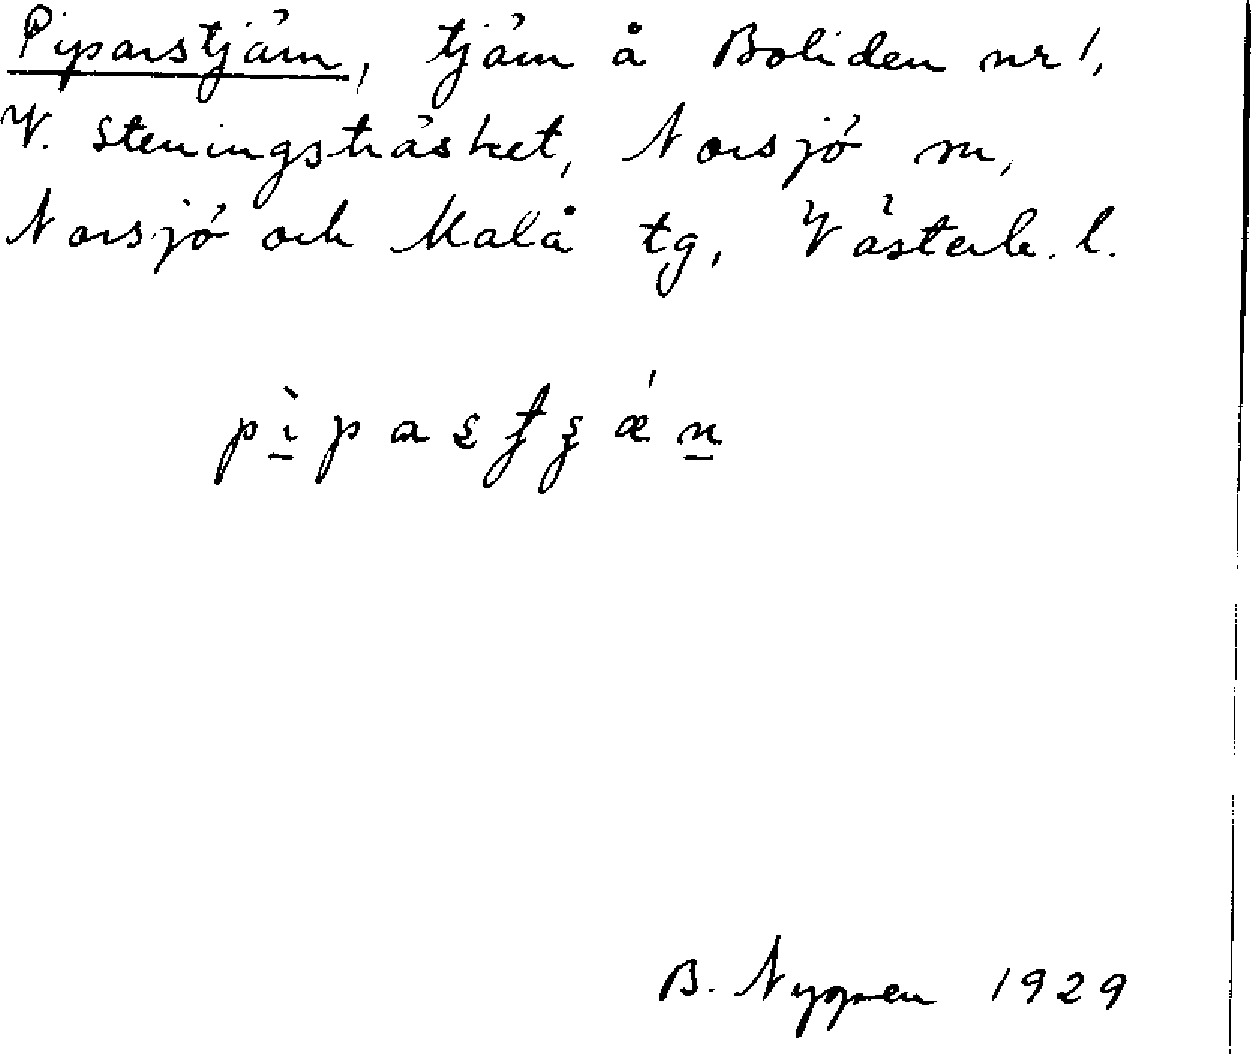 Piparstjärn, tjärn å Boliden nr 1,
V. Steningsträsket, Norsjö sn,
Norsjö och Malå tg, Västerb. l.
B. Nygren 1929